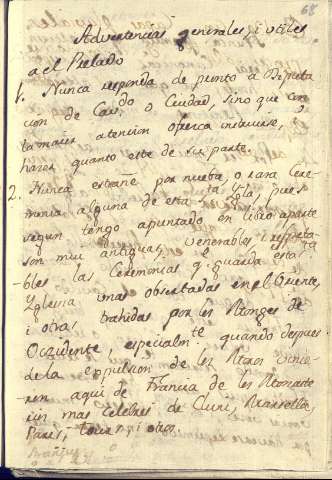 68
Advertencias generales, i utiles
a el Prelado
1. Nunca responda de punto a Diputa
cion de Cavdo o Ciudad, sino que con
la maior atencion ofrezca instruirse, i
hazer quanto esté de su parte.
2. Nunca estrañe por nueba, o rara Cere-
monia alguna de esta Sta Ygla, pues
segun tengo apuntado en libro aparte
son mui antiguas, venerables i respeta-
bles las Ceremonias q.e guarda esta
Yglesia unas observadas en el Oriente,
i otras trahidas por los Monges de
Occidente, especialmte quando despues
de la expulsion de los Moros vinie-
ron aqui de Francia de los Monaste
rios mas celebres de Cluni, Marsella,
Paris, Tours, i otros.